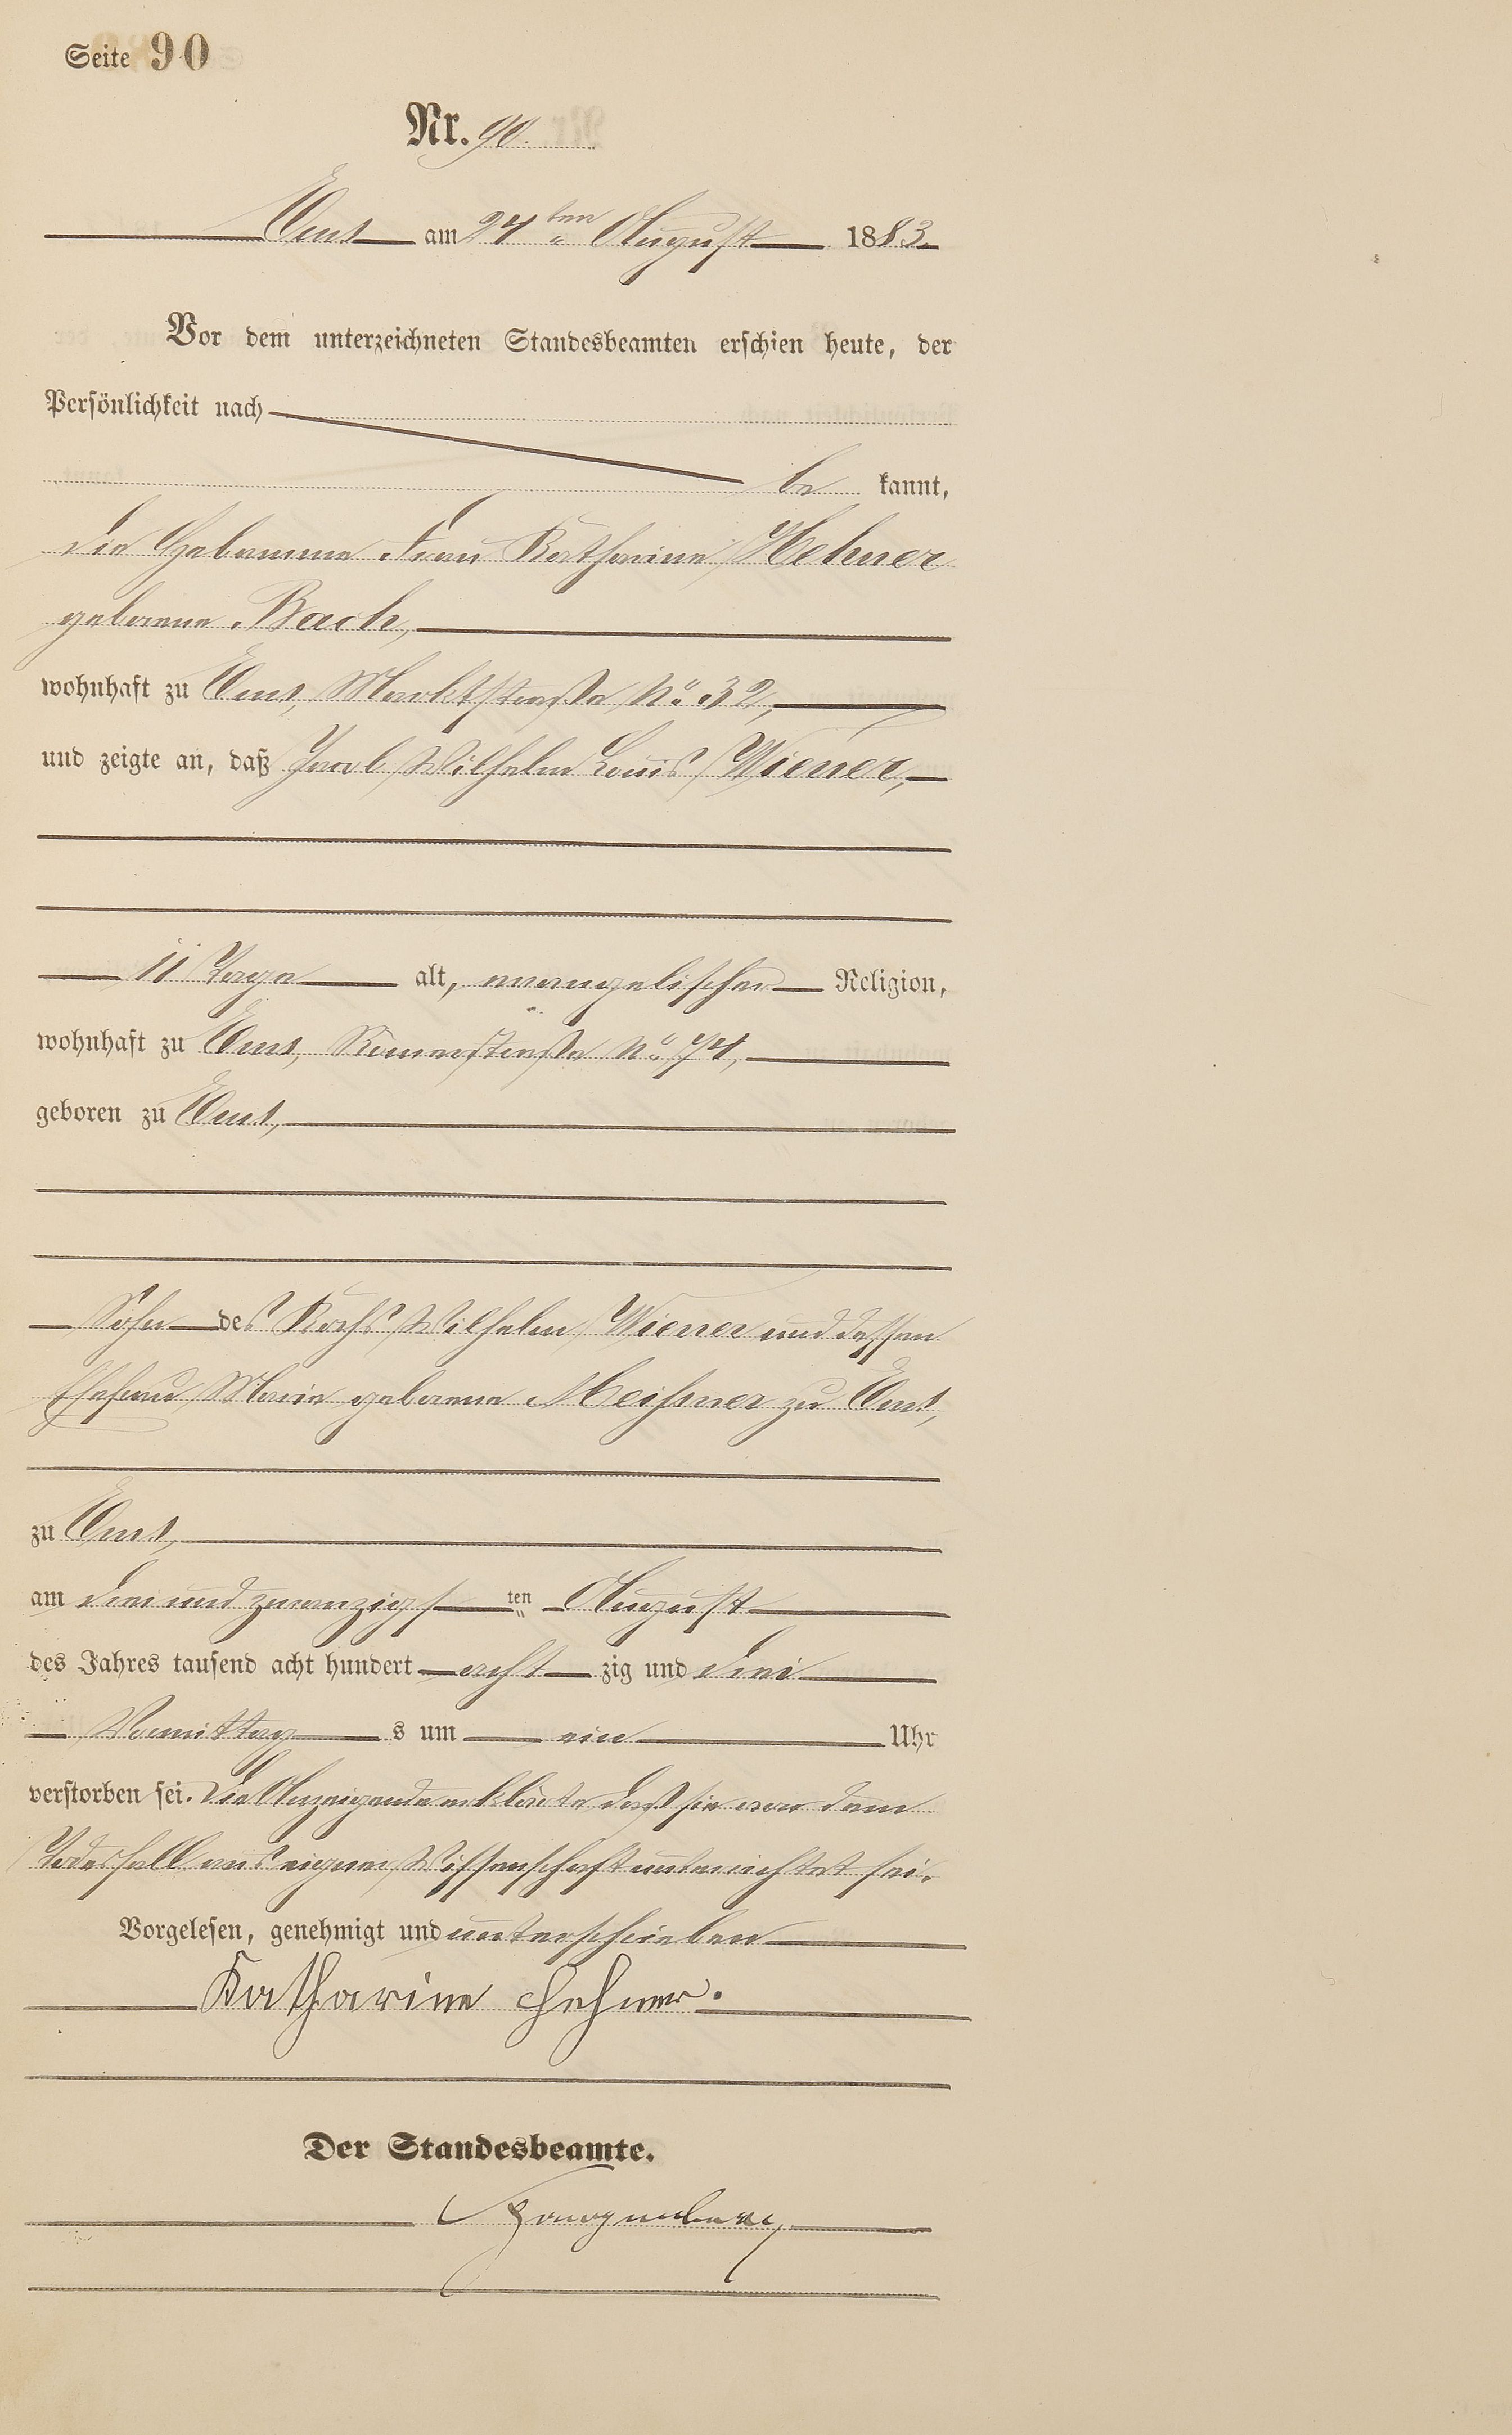 Seite 90
Nr. 90.
Ems am 24ten August 1883.
Vor dem unterzeichneten Standesbeamten erschien heute, der
Persönlichkeit nach
be kannt,
die Hebamme Frau Katharine Hehner
geborene Bach,
wohnhaft zu Ems, Marktstraße No. 32,
und zeigte an, daß Jacob Wilhelm Louis Wiener,
11 Tage alt, evangelischer Religion,
wohnhaft zu Ems, Römerstraße No. 74,
geboren zu Ems,
Sohn des Kochs Wilhelm Wiener und dessen
Ehefrau Marie geborene Meißner zu Ems,
zu Ems,
am drei und zwanzigsten August
des Jahres tausend acht hundert acht zig und drei
Vormittags um ein Uhr
verstorben sei. Die Anzeigende erklärte daß sie von dem
Todesfall aus eigener Wissenschaft unterrichtet sei.
Vorgelesen, genehmigt und unterschrieben
Katharine Hehner.
Der Standesbeamte.